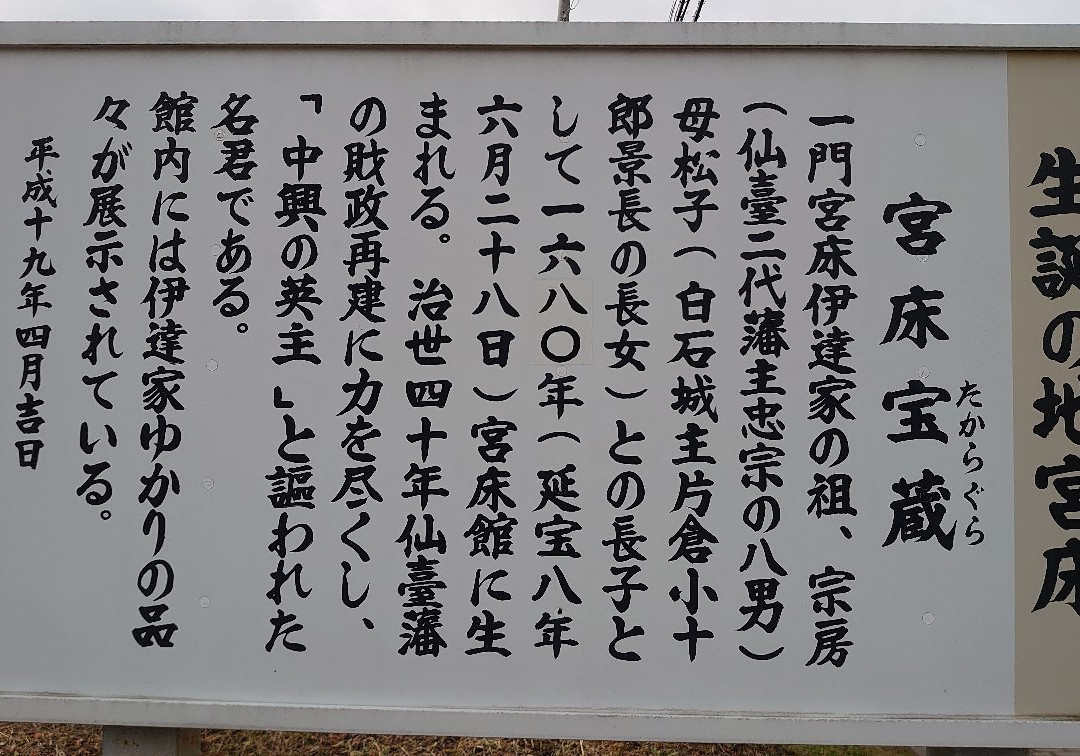 生誕の地宮床
宮床宝蔵
たからぐら
一門宮床伊達家の祖、宗房
(仙臺二代藩主忠宗の八男)
母松子(白石城主片倉小十
郎景長の長女)との長子と
して一六八〇年(延宝八年
六月二十八日)宮床館に生
まれる。治世四十年仙臺藩
の財政再建に力を尽くし、
「中興の英主」と謳われた
名君である。
館内には伊達家ゆかりの品
々が展示されている。
平成十九年四月吉日